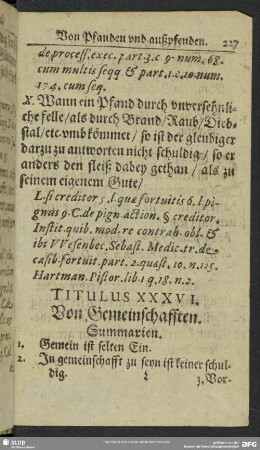 Von Pfanden vnd außpfenden. 227
de process. exec. part. 3. c. 9. num. 68.
cum multis seqq. & part. 1. c. 10. num.
174. cum seq.
X. Wann ein Pfand durch vnversehnli-
che felle / als durch Brand / Raub / Dieb-
stal / etc. vmb kömmet / so ist der gleubiger
darzu zu antworten nicht schuldig / so er
anders den fleiß dabey gethan / als zu
seinem eigenem Gute /
L. si creditor 5. l. quæ fortuitis 6. l. pi-
gnus 9. C. de pign. action. § creditor.
Instit. quib. mod. re contrah. obl. &
ibi VVesenbec. Sebast. Medic. tr. de
casib. fortuit. part. 2. quæst. 10. n. 115.
Hartman. Pistor. lib. 1 q. 18. n. 2.
TITULUS XXXVI.
Von Gemeinschafften.
Summarien.
1. Gemein ist selten Ein.
2. In gemeinschafft zu seyn ist keiner schul-
dig.
3. Vor-
SLUB
DFG